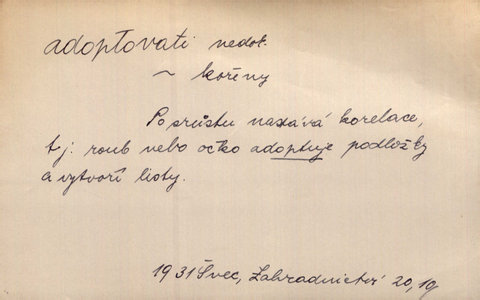 adoptovati nedok.
~ kořeny
Po srůstu nastává korelace,
tj. roub nebo očko adoptuje podložky
a vytvoří listy.
1931 Švec, Zahradnictví 20, 19